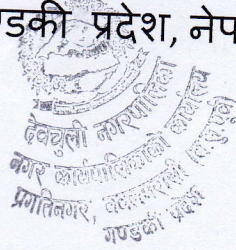 ण्डकी प्रदेश, नेप
देवचुली नगरपालिका
नगर कार्यपालिकाको कार्यालय
प्रगतिनगर, नवलपरासी
गण्डकी प्रदेश